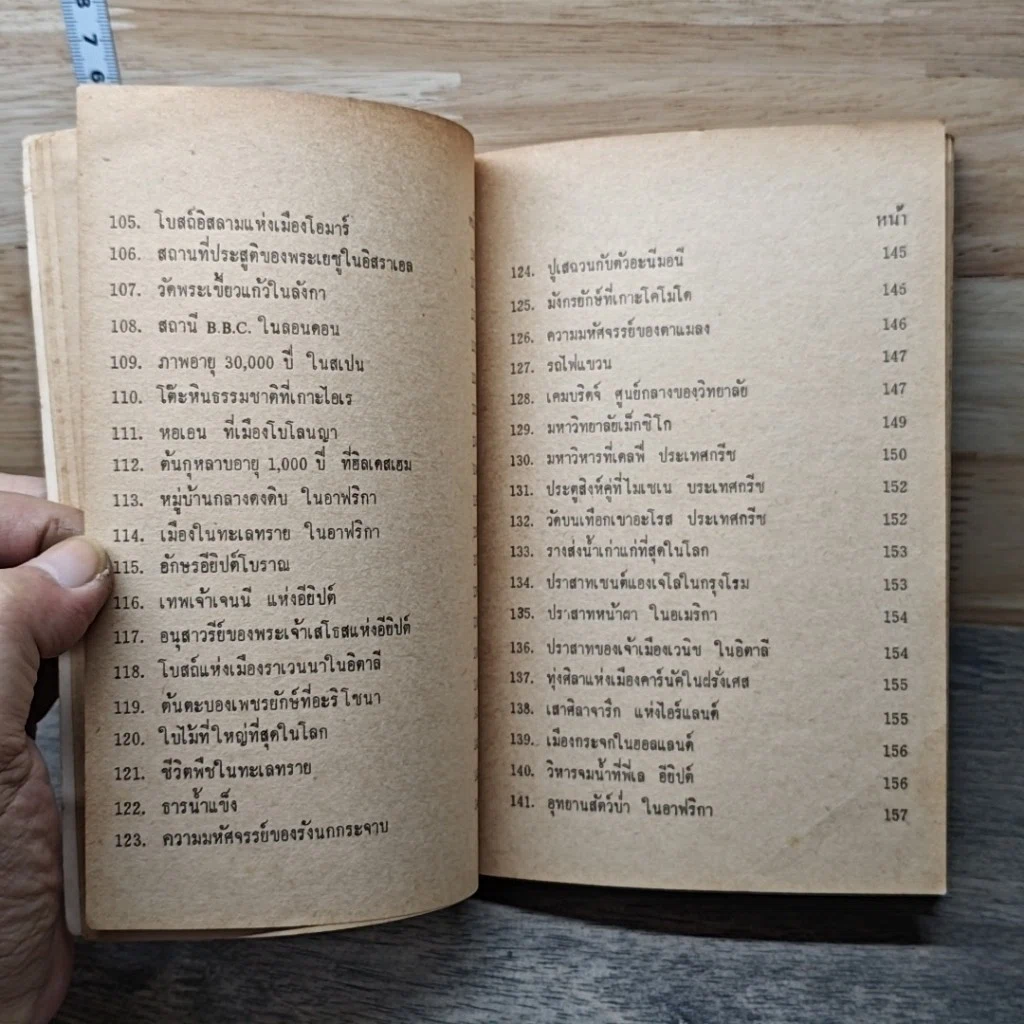 105. โบสถ์อิสลามแห่งเมืองโอมาร์
106. สถานที่ประสูติของพระเยซูในอิสราเอล
107. วัดพระเขี้ยวแก้วในลังกา
108. สถานี B.B.C. ในลอนดอน
109. ภาพอายุ 30,000 ปี ในสเปน
110. โต๊ะหินธรรมชาติที่เกาะไอเร
111. หอเอน ที่เมืองโบโลนญา
112. ต้นกุหลาบอายุ 1,000 ปี ที่ฮิลเดสเฮม
113. หมู่บ้านกลางดงดิบ ในอาฟริกา
114. เมืองในทะเลทราย ในอาฟริกา
115. อักษรอียิปต์โบราณ
116. เทพเจ้าเจนนี แห่งอียิปต์
117. อนุสาวรีย์ของพระเจ้าเสโธสแห่งอียิปต์
118. โบสถ์แห่งเมืองราเวนนาในอิตาลี
119. ต้นตะบองเพชรยักษ์ที่อะริโซนา
120. ใบไม้ที่ใหญ่ที่สุดในโลก
121. ชีวิตพืชในทะเลทราย
122. ธารน้ำแข็ง
123. ความมหัศจรรย์ของรังนกกระจาบ
หน้า
124. ปูเสฉวนกับตัวอะนีมอนี 145
125. มังกรยักษ์ที่เกาะโคโมโด 145
126. ความมหัศจรรย์ของตาแมลง 146
127. รถไฟแขวน 147
128. เคมบริดจ์ ศูนย์กลางของวิทยาลัย 147
129. มหาวิทยาลัยเม็กซิโก 149
130. มหาวิหารที่เดลฟี ประเทศกรีซ 150
131. ประตูสิงห์คู่ที่ไมเซเน ประเทศกรีซ 152
132. วัดบนเทือกเขาอะโรส ประเทศกรีซ 152
133. รางส่งน้ำเก่าแก่ที่สุดในโลก 153
134. ปราสาทเซนต์แองเจโลในกรุงโรม 153
135. ปราสาทหน้าผา ในอเมริกา 154
136. ปราสาทของเจ้าเมืองเวนิช ในอิตาลี 154
137. ทุ่งศิลาแห่งเมืองคาร์นัคในฝรั่งเศส 155
138. เสาศิลาจารึก แห่งไอร์แลนด์ 155
139. เมืองกระจกในฮอลแลนด์ 156
140. วิหารจมน้ำที่พีเล อียิปต์ 156
141. อุทยานสัตว์ป่า ในอาฟริกา 157
8
7
6